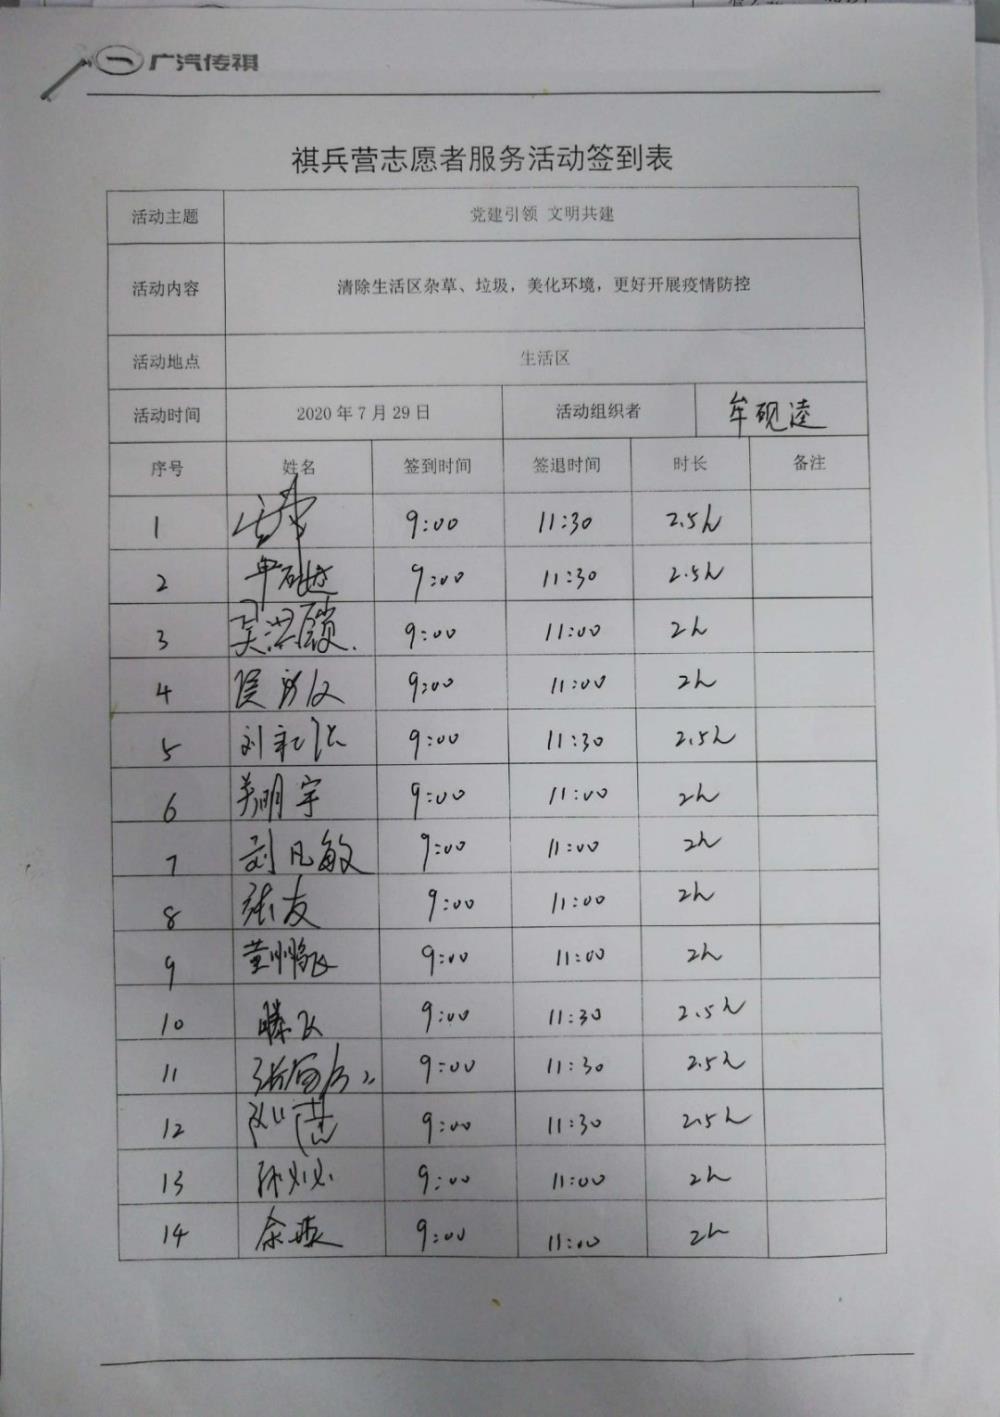 广汽传祺
祺兵营志愿者服务活动签到表
活动主题 党建引领 文明共建
活动内容 清除生活区杂草、垃圾，美化环境，更好开展疫情防控
活动地点 生活区
活动时间 2020年7月29日 活动组织者 牟砚逵
序号 姓名 签到时间 签退时间 时长 备注
1 9:00 11:30 2.5h
2 9:00 11:30 2.5h
3 吴洪锁 9:00 11:00 2h
4 9:00 11:00 2h
5 刘 9:00 11:30 2.5h
6 明宇 9:00 11:00 2h
7 刘凡敏 9:00 11:00 2h
8 张友 9:00 11:00 2h
9 董鹏飞 9:00 11:00 2h
10 滕飞 9:00 11:30 2.5h
11 张 9:00 11:30 2.5h
12 9:00 11:30 2.5h
13 9:00 11:00 2h
14 余 9:00 11:00 2h